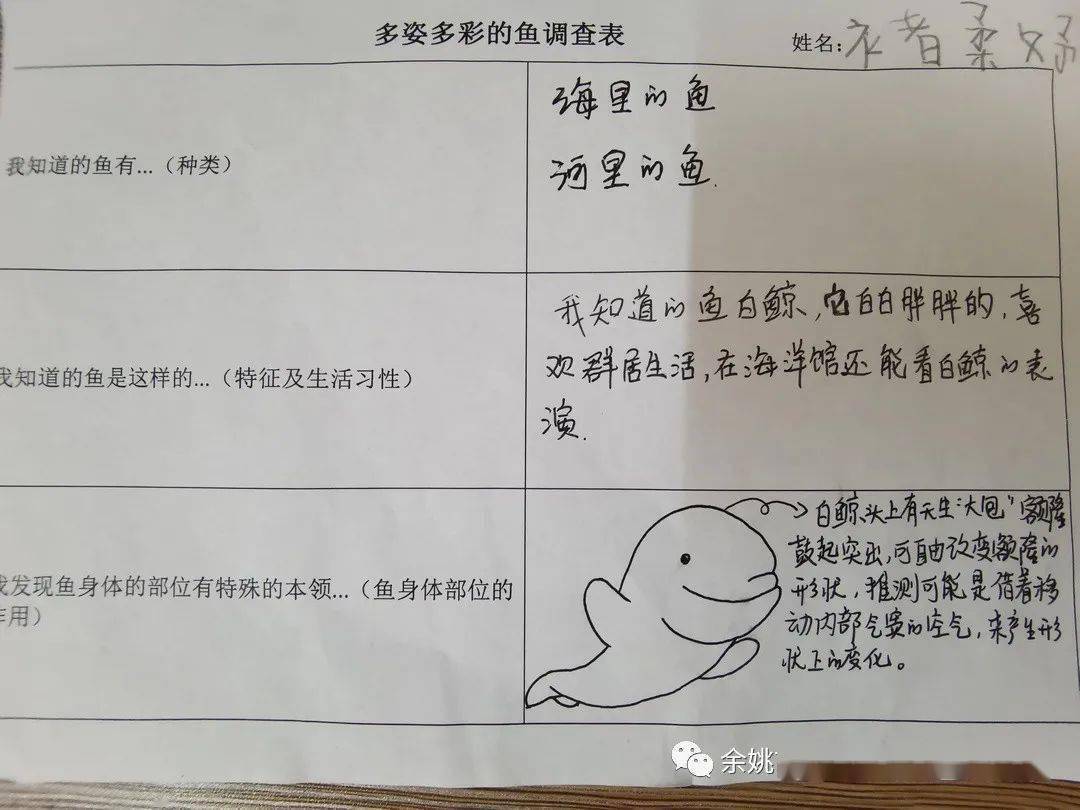 多姿多彩的鱼调查表
姓名:褚柔妤
我知道的鱼有...(种类)
海里的鱼
河里的鱼.
我知道的鱼是这样的...(特征及生活习性)
我知道的鱼白鲸,它白白胖胖的,喜
欢群居生活,在海洋馆还能看白鲸的表
演.
我发现鱼身体的部位有特殊的本领...(鱼身体部位的
作用)
白鲸头上有天生"大包"额隆
鼓起突出,可自由改变额隆的
形状,推测可能是借着移
动内部气囊的空气,来产生形
状上的变化。
余姚